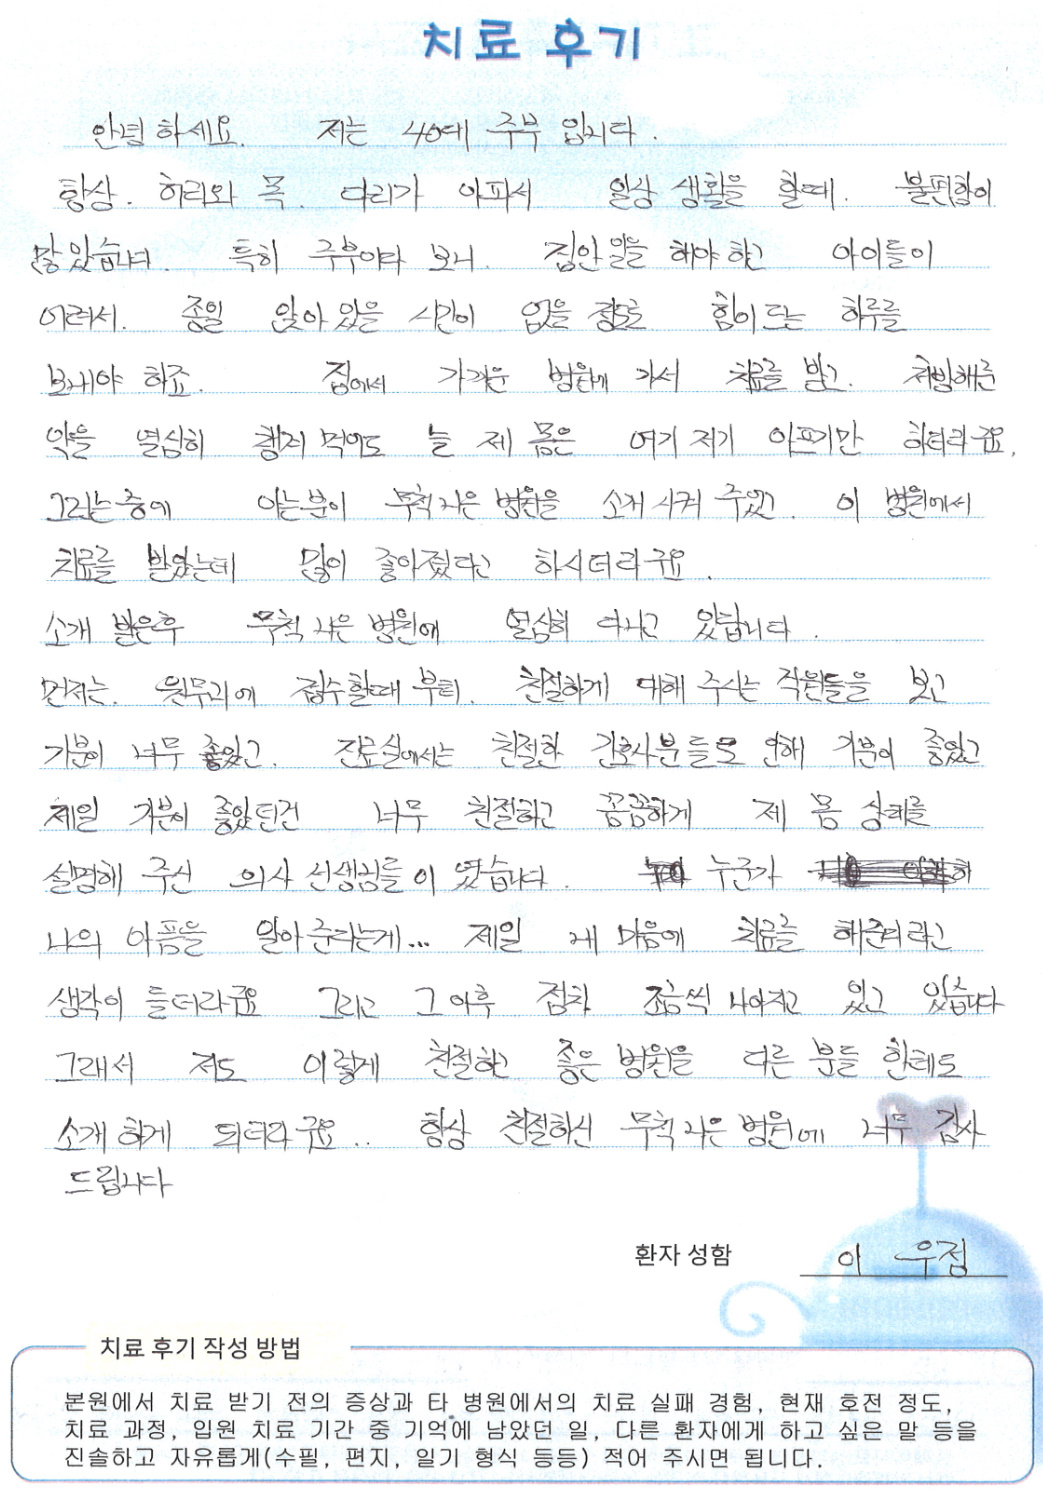 치료 후기
안녕 하세요. 저는 40대 주부 입니다.
항상. 허리와 목. 다리가 아파서 일상 생활을 할때. 불편함이
많았습니다. 특히 주부이다 보니. 집안 일을 해야 하고 아이들이
어려서. 종일 앉아 있을 시간이 없을 정도로 힘이 드는 하루를
보내야 하죠. 집에서 가까운 병원에 가서 치료를 받고. 처방해준
약을 열심히 챙겨 먹어도 늘 제 몸은 여기 저기 아프기만 하더라구요.
그러는중에 아는분이 무척 나은 병원을 소개 시켜 주었고. 이 병원에서
치료를 받았는데 많이 좋아졌다고 하시더라구요.
소개 받은후 무척 나은 병원에 열심히 다니고 있답니다.
먼저는. 원무과에 접수할때 부터. 친절하게 대해 주시는 직원들을 보고
기분이 너무 좋았고. 진료실에서는 친절한 간호사분들로 인해 기분이 좋았고
제일 기분이 좋았던건 너무 친절하고 꼼꼼하게 제 몸 상태를
설명해 주신 의사 선생님들이 였습니다. 누군가
나의 아픔을 알아준다는게... 제일 내 마음에 치료를 해준더라고
생각이 들더라구요 그리고 그 이후 점차 조금씩 나아지고 있고 있습니다
그래서 저도 이렇게 친절하고 좋은 병원을 다른 분들 한테도
소개 하게 되더라구요.. 항상 친절하신 무척 나은 병원에 너무 감사
드립니다
환자 성함 이 우정
치료 후기 작성 방법
본원에서 치료 받기 전의 증상과 타 병원에서의 치료 실패 경험, 현재 호전 정도,
치료 과정, 입원 치료 기간 중 기억에 남았던 일, 다른 환자에게 하고 싶은 말 등을
진솔하고 자유롭게(수필, 편지, 일기 형식 등등) 적어 주시면 됩니다.